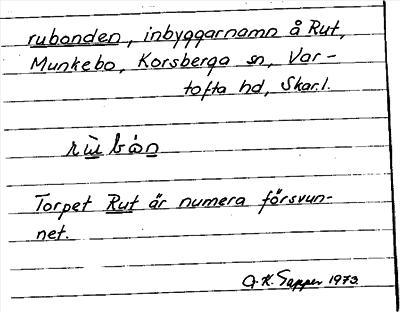 rubonden, inbyggarnamn å Rut,
Munkebo, Korsberga sn, Var-
tofta hd, Skar.l.
rù bón
Torpet Rut är numera försvun-
net.
G.K. Tapper 1973.